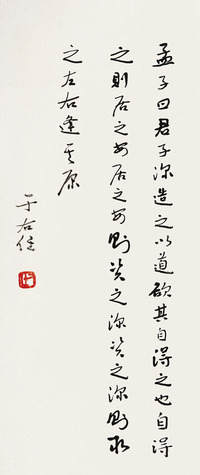 孟子曰君子深造之以道欲其自得之也自得
之則居之安居之安則资之深资之深則取
之左右逢其原
于右任